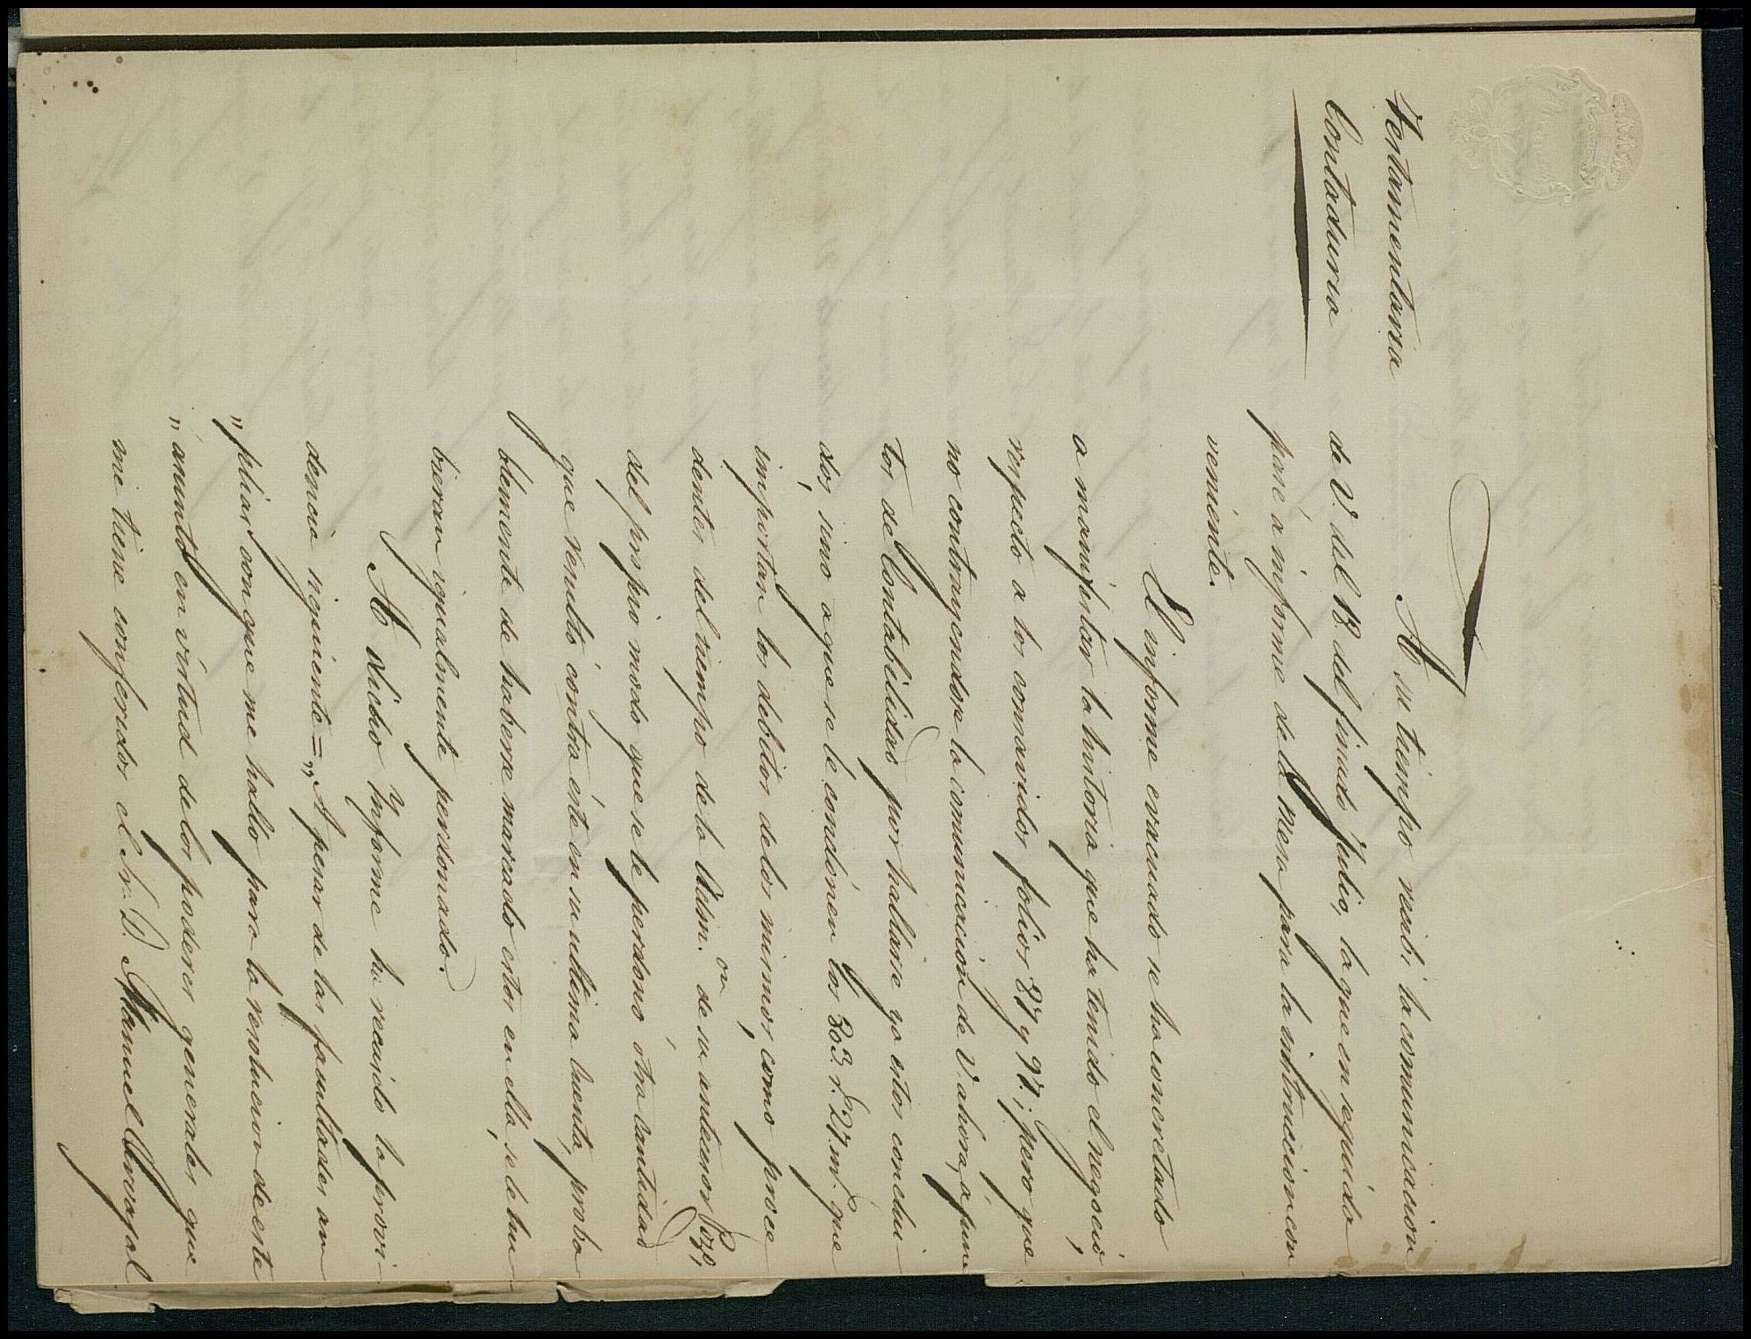 Testamentaria
Contaduria
A su tiempo recibí la comunicacion
de V. del 13 del finado Julio, la que en seguida
pasé á informe de la mesa para la instruccion con
veniente.
El informe evacuado se ha concretado
a manifestar la historia que ha tenido el negocio,
respecto a los consavidos folios 87 y 97; pero que
no contrayendose la comunicacion de V. ahora, a pun
tos de Contabilidad por hallarse ya estos conclui
dos, sino a que se le condonen los 363 r.s 27 mr.s que
importan los debitos de los mismos, como proce
dentes del tiempo de la Adm.on de su antecesor Pozo,
del propio modo que se le perdonó otra Cantidad
que resultó contra éste en su ultima Cuenta, proba
blemente de haberse marcado estos en ella, se le hu
bieran igualmente perdonado.
A dicho Informe he recaido la provi
dencia siguiente = „A pesar de las facultades am
„plias con que me hallo para la resolucion de este
„asunto en virtud de los poderes generales que
me tiene conferidos el Sr. D. Manuel Carvajal